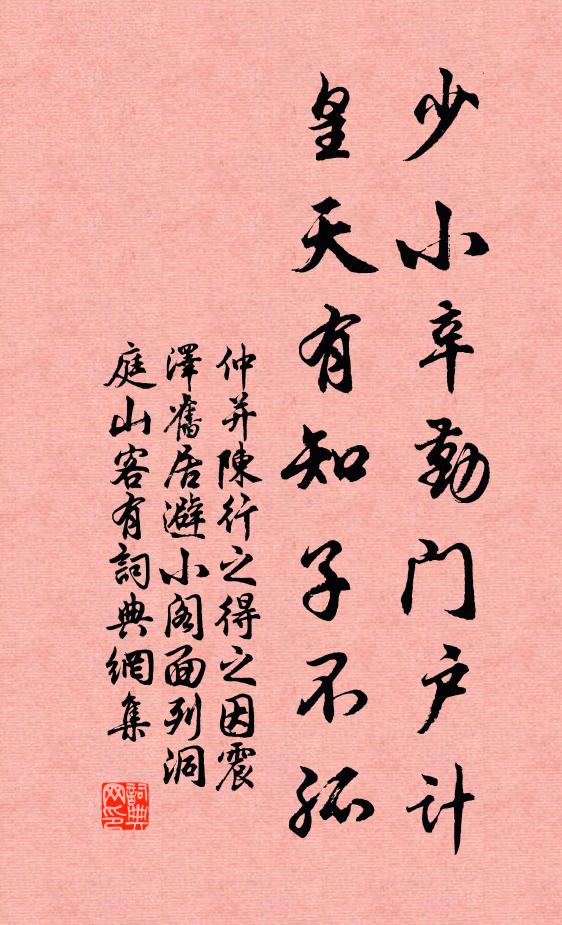 少小辛勤门户计
皇天有知子不孤
仲并陳行之得之因震
澤舊居避小阁面列洞
庭山客有詞典網集
詞典
网印